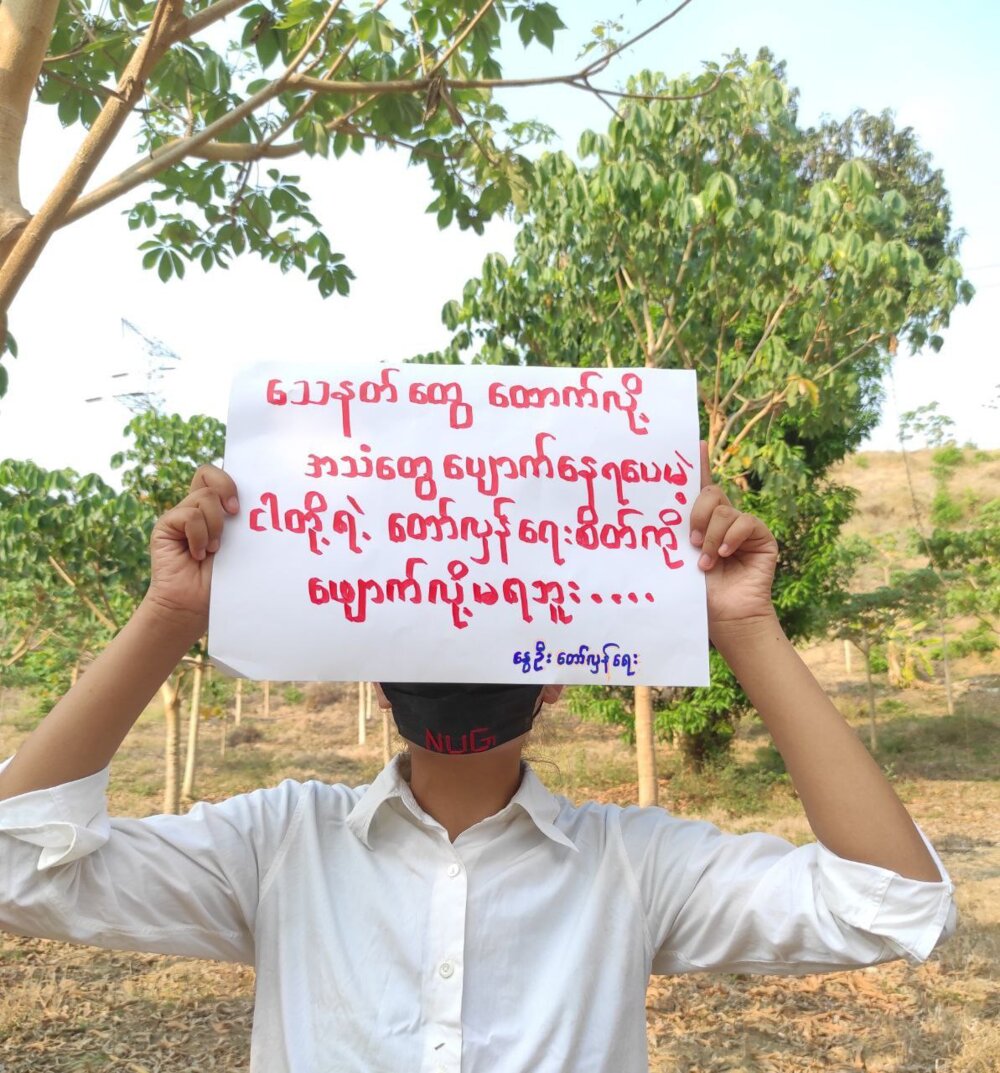 သေနတ် တွေ ထောက်လို့
အသံတွေ ပျောက်နေရပေမဲ့
ငါတို့ရဲ့ တော်လှန်ရေးစိတ်ကို
ဖျောက်လို့မရဘူး....
နွေဦး တော်လှန်ရေး
NUG